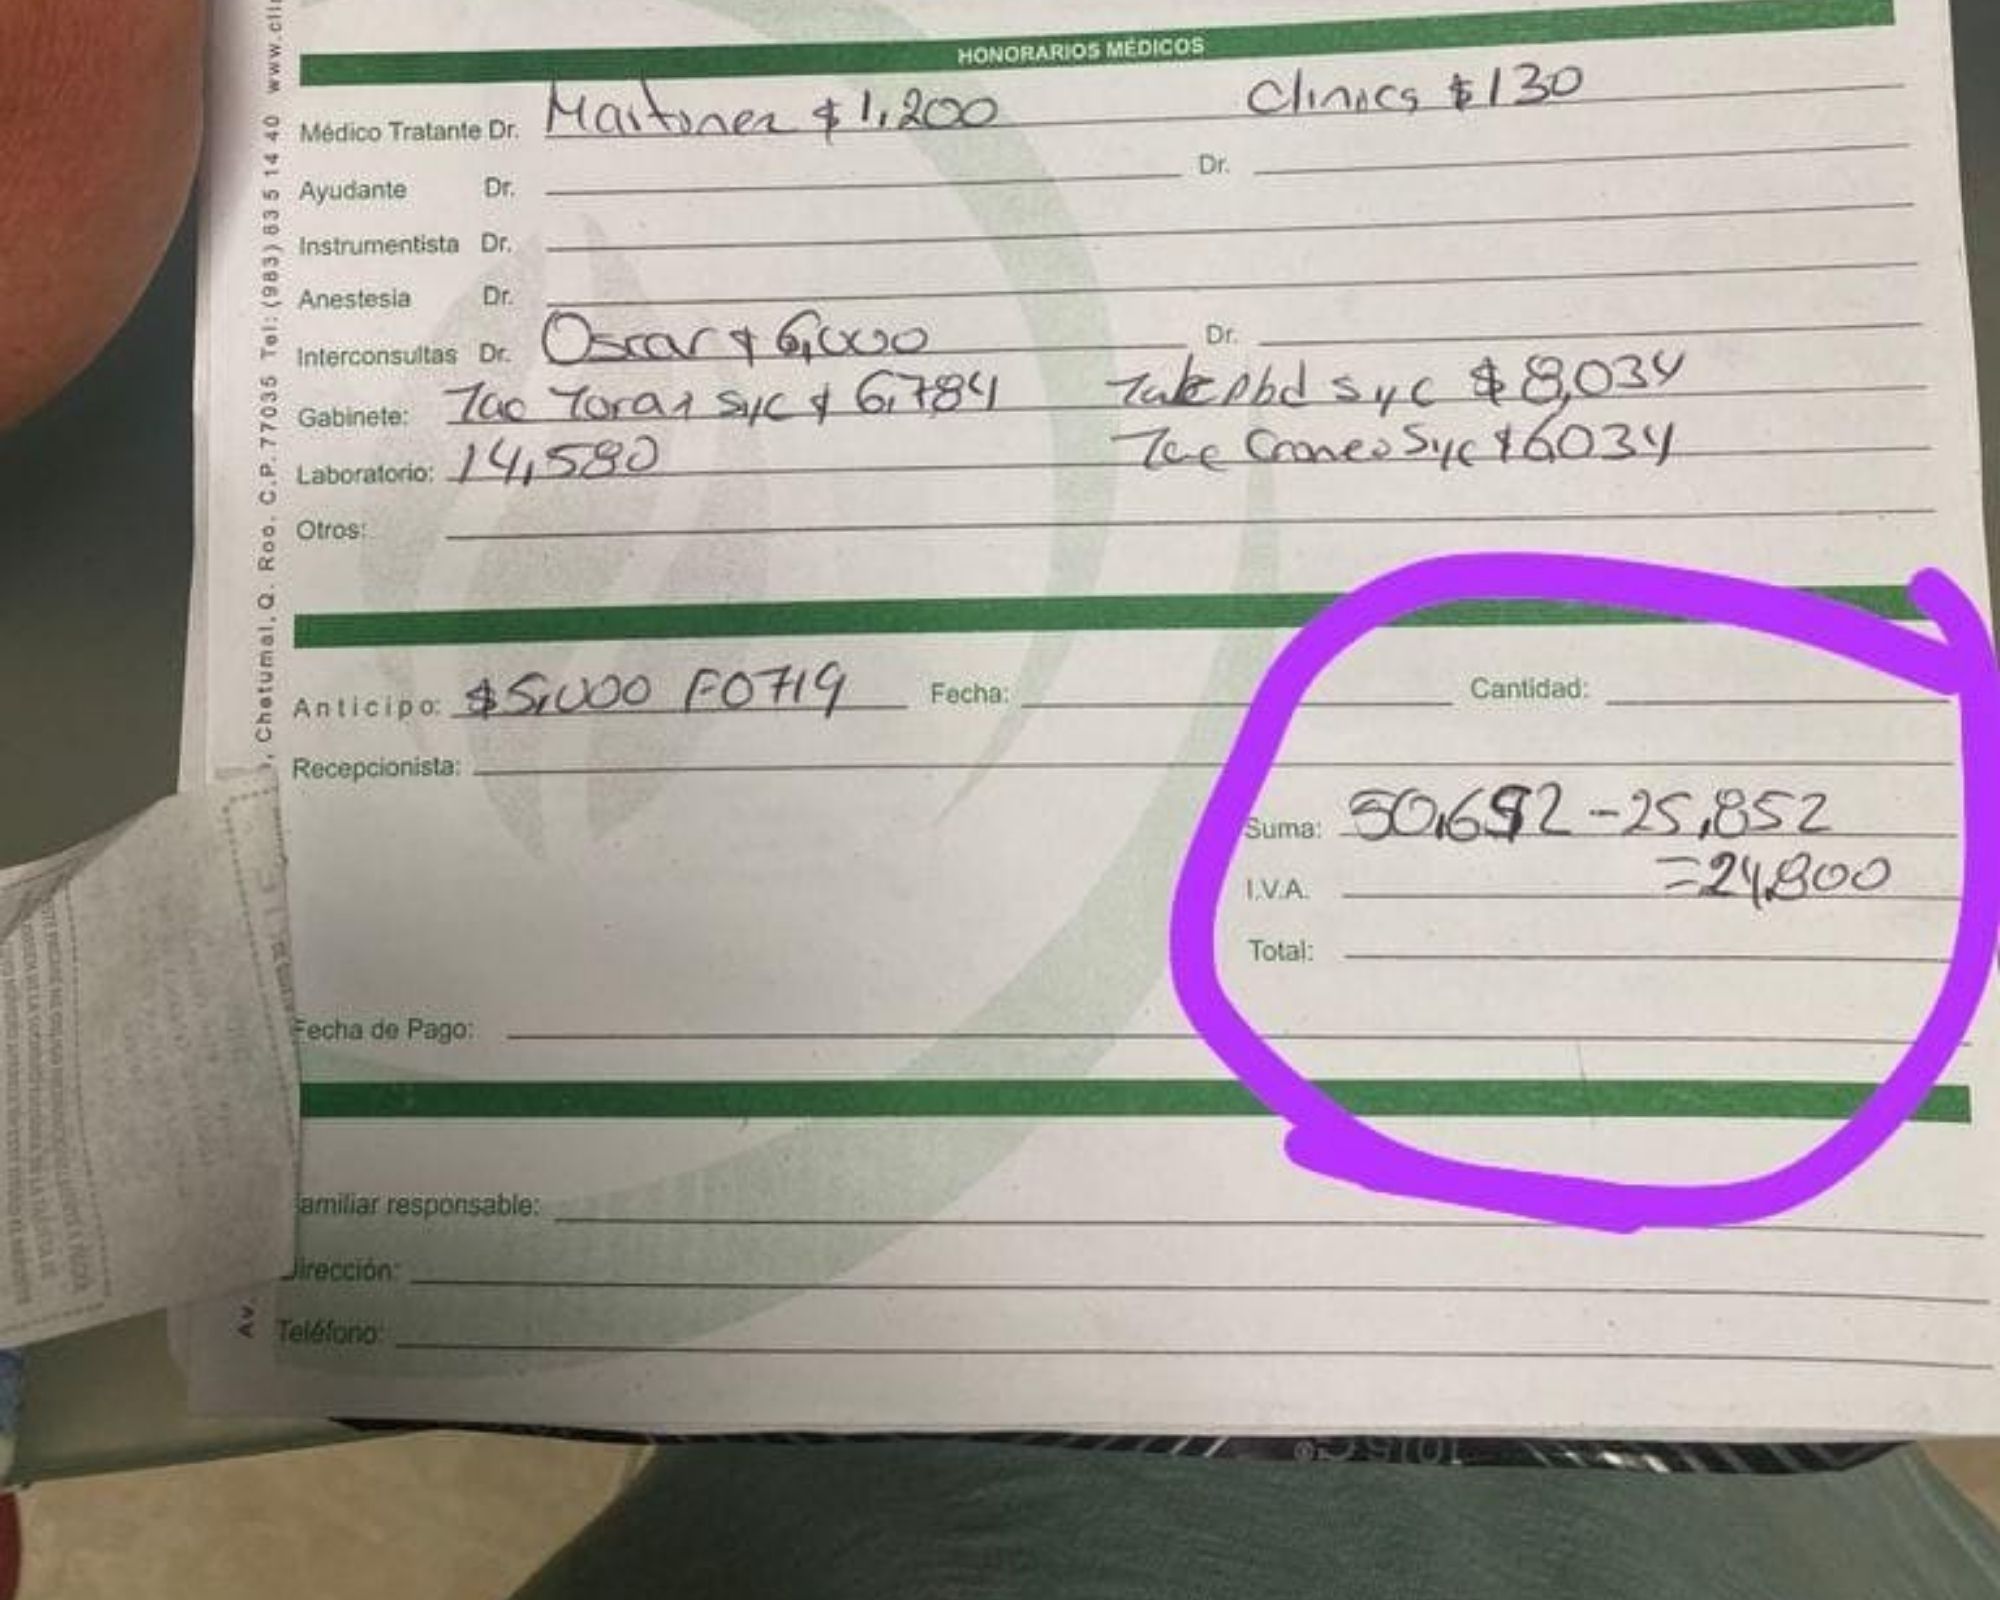 HONORARIOS MÉDICOS
Médico Tratante Dr. Martinez $1,200 Clinics $130
Ayudante Dr. Dr.
Instrumentista Dr.
Anestesia Dr.
Interconsultas Dr. Oscar $6,000 Dr.
Gabinete: Tac Torax Syc $6,784 Abd Syc $8,034
Laboratorio: 14,580 Tac Craneo Syc $6034
Otros:
Anticipo: $5,000 F0719 Fecha: Cantidad:
Recepcionista:
Suma: 50,652 -25,852
=24,800
I.V.A.
Total:
Fecha de Pago:
amiliar responsable:
Dirección:
Teléfono:
Av. , Chetumal, Q. Roo. C.P. 77035 Tel: (983) 83 5 14 40 www.cli